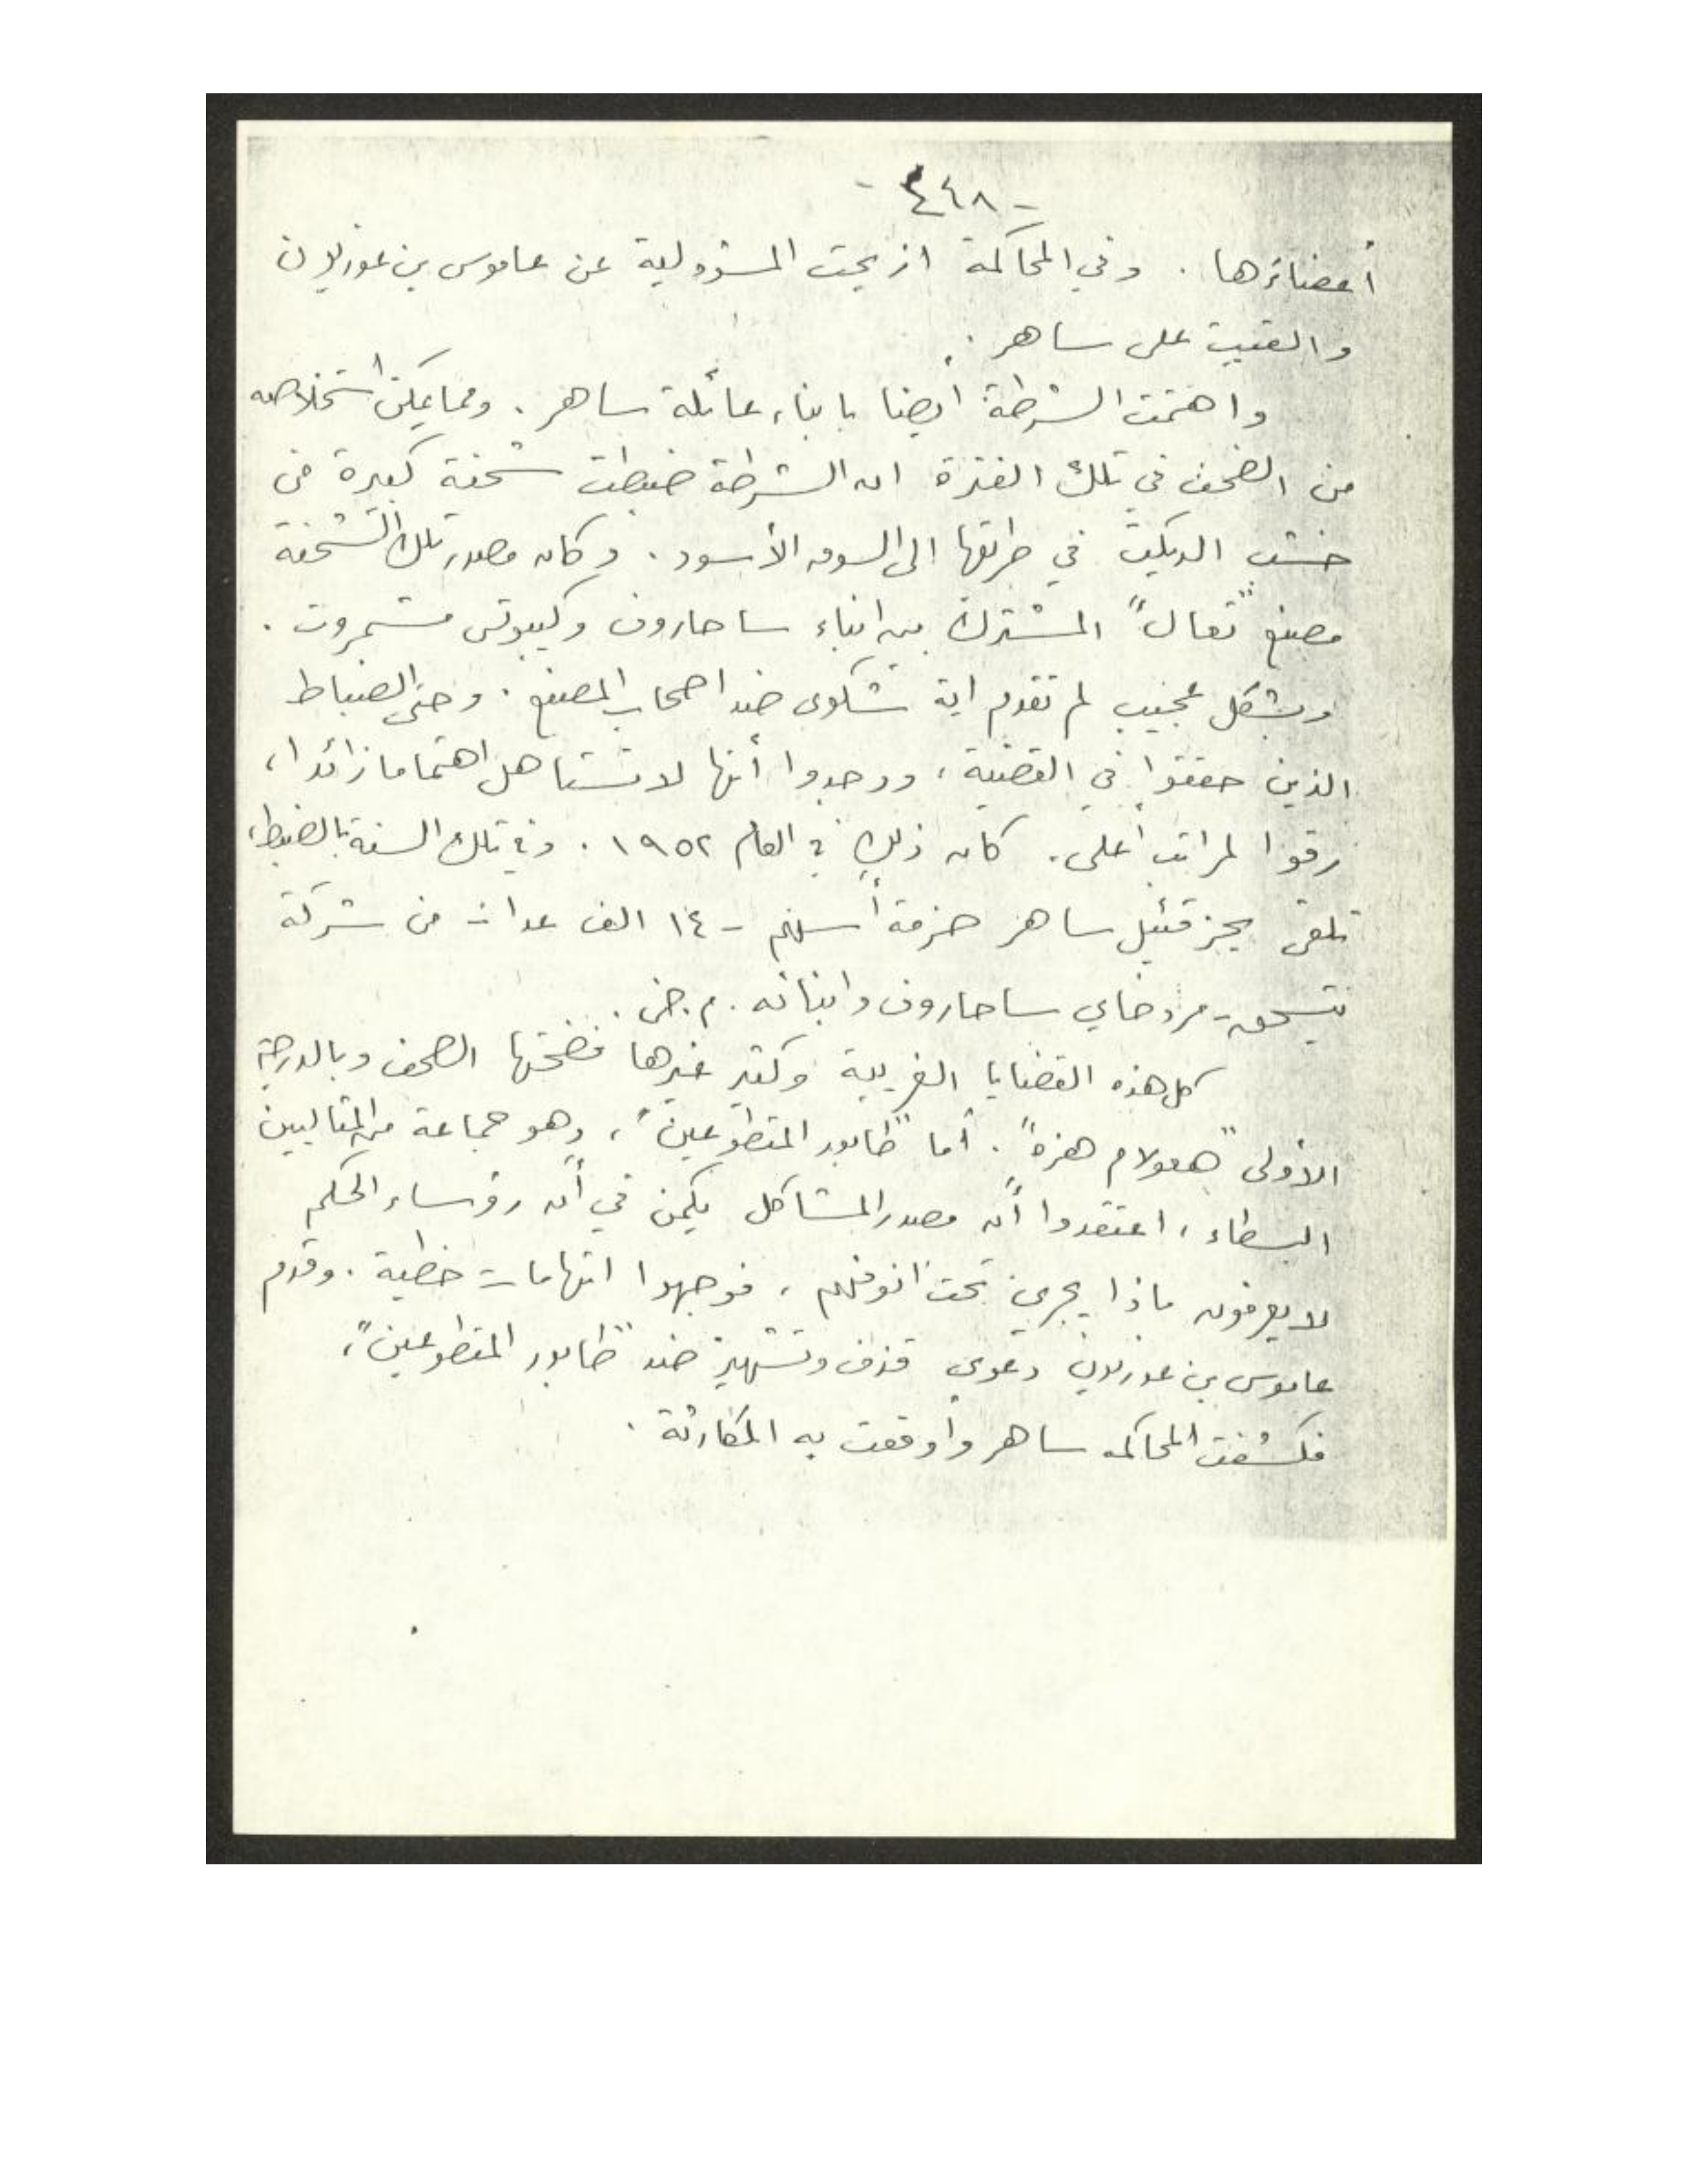 - ٤٤٨ -
أعضاؤها . وفي المحاكمة ازيحت المسؤولية عن عاموس بن غوريون
والقيت على ساهر .
واهتمت الشرطة أيضا بابناء عائلة ساهر . ومما يمكن استخلاصه
من الصحف في تلك الفترة ان الشرطة ضبطت شحنة كبيرة من
خشب الديكت في طريقها الى السوق الأسود . وكان مصدر تلك الشحنة
مصنع "تعال" المشترك بين ابناء ساحاروف وكيبوتس مشمروت .
وبشكل عجيب لم تقدم اية شكوى ضد اصحاب المصنع . وحتى الضباط
الذين حققوا في القضية ، ووجدوا أنها لا تستاهل اهتماما زائدا ،
رقوا لمراتب أعلى . كان ذلك في العام ١٩٥٢ . وفي تلك السنة بالضبط ،
تلقى يحزقئيل ساهر حزمة أسهم - ١٤ الف عدا - من شركة
يتسحق - مردخاي ساحاروف وابنائه . م.ض .
كل هذه القضايا الغريبة وكثير غيرها فضحتها الصحف وبالدرجة
الأولى "هعولام هزه" . أما "طابور المتطوعين" ، وهو جماعة من المثاليين
البسطاء ، اعتقدوا أن مصدر المشاكل يكمن في أن رؤساء الحكم
لا يعرفون ماذا يجري تحت انوفهم ، فوجهوا اتهامات خطية . وقدم
عاموس بن غوريون دعوى قذف وتشهير ضد "طابور المتطوعين" ،
فكشفت المحاكمه ساهر وأوقعت به الكارثة .